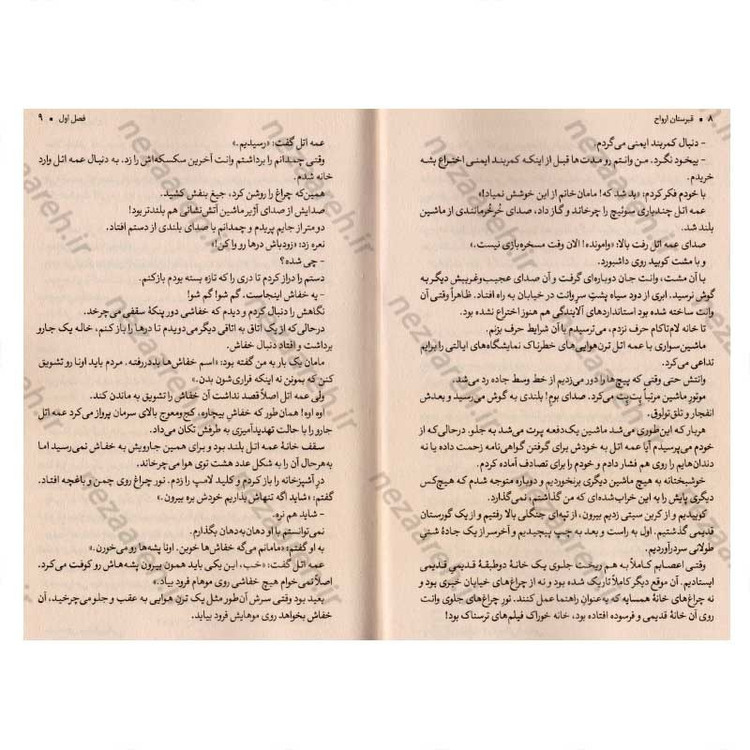 ۸ • قبرستان ارواح
- دنبال کمربند ایمنی می‌گردم.
- بیخود نگرد. من وانتم رو مدت‌ها قبل از اینکه کمربند ایمنی اختراع بشه
خریدم.
با خودم فکر کردم: «بد شد که! مامان‌خانم از این خوشش نمیاد!»
عمه اتل چندباری سوئیچ را چرخاند و گاز داد، صدای خُرخُرمانندی از ماشین
بلند شد.
صدای عمه اتل رفت بالا: «وامونده! الان وقت مسخره‌بازی نیست.»
و با مشت کوبید روی داشبورد.
با آن مشت، وانت جان دوباره‌ای گرفت و آن صدای عجیب‌وغریبش دیگر به
گوش نرسید. ابری از دود سیاه پشتِ سرِ وانت در خیابان به راه افتاد. ظاهراً وقتی آن
وانت ساخته شده بود استانداردهای آلایندگی هم هنوز اختراع نشده بود.
تا خانه لام‌تاکام حرف نزدم، می‌ترسیدم با آن شرایط حرف بزنم.
ماشین‌سواری با عمه اتل ترن‌هوایی‌های خطرناک نمایشگاه‌های ایالتی را برایم
تداعی می‌کرد.
وانتش حتی وقتی که پیچ‌ها را دور می‌زدیم از خط وسط جاده رد می‌شد.
موتورِ ماشین مرتباً پت‌پت می‌کرد. صدای بوم! بلندی به گوش می‌رسید و بعدش
انفجار و تلق‌تولوق.
هربار که این‌طوری می‌شد ماشین یک‌دفعه پرت می‌شد به جلو. درحالی‌که از
خودم می‌پرسیدم آیا عمه اتل به خودش برای گرفتن گواهی‌نامه زحمت داده یا نه
دندان‌هایم را روی هم فشار دادم و خودم را برای تصادف آماده کردم.
خوشبختانه به هیچ ماشین دیگری برنخوردیم و دوباره متوجه شدم که هیچ‌کس
دیگری پایش را به این خراب‌شده‌ای که من گذاشتم، نمی‌گذارد.
کوبیدیم و از کرین سیتی زدیم بیرون، از تپه‌ای جنگلی بالا رفتیم و از یک گورستان
قدیمی گذشتیم. اول به راست و بعد به چپ پیچیدیم و آخرسر از یک جادهٔ شنی
طولانی سردرآوردیم.
وقتی اعصابم کاملاً به هم ریخت جلوی یک خانهٔ دوطبقهٔ قدیمی قدیمی
ایستادیم. آن موقع دیگر کاملاً تاریک شده بود و نه از چراغ‌های خیابان خبری بود و
نه چراغ‌های خانهٔ همسایه که به‌عنوان راهنما عمل کنند. نورِ چراغ‌های جلوی وانت
روی آن خانه قدیمی و فرسوده افتاده بود، خانه خوراک فیلم‌های ترسناک بود!
فصل اول • ۹
عمه اتل گفت: «رسیدیم.»
وقتی چمدانم را برداشتم وانت آخرین سکسکه‌اش را زد. به دنبال عمه اتل وارد
خانه شدم.
همین‌که چراغ را روشن کرد، جیغ بنفش کشید.
صدایش از صدای آژیر ماشین آتش‌نشانی هم بلندتر بود!
دو متر از جایم پریدم و چمدانم با صدای بلندی از دستم افتاد.
نعره زد: «زودباش درها رو وا کن!»
- چی شده؟
دستم را دراز کردم تا دری را که تازه بسته بودم بازکنم.
- یه خفاش اینجاست. گم شو! گم شو!
نگاهش را دنبال کردم و دیدم که خفاشی دور پنکهٔ سقفی می‌چرخد.
درحالی‌که از یک اتاق به اتاقی دیگر می‌دویدم تا درها را باز کنم، خاله یک جارو
برداشت و افتاد دنبال خفاش.
مامان یک بار به من گفته بود: «اسم خفاش‌ها بددررفته. مردم باید اونا رو تشویق
کنن که بمونن نه اینکه فراری‌شون بدن.»
ولی عمه اتل اصلاً قصد نداشت آن خفاش را تشویق به ماندن کند.
اوه اوه! همان‌طور که خفاشِ بیچاره، کج‌ومعوج بالای سرمان پرواز می‌کرد عمه اتل
جارو را با حالت تهدیدآمیزی به طرفش تکان می‌داد.
سقف خانهٔ عمه اتل بلند بود و برای همین جارویش به خفاش نمی‌رسید اما
به‌هرحال آن را به شکل عدد هشت توی هوا می‌چرخاند.
درِ آشپزخانه را باز کردم و کلید لامپ را زدم. نور چراغ روی چمن و باغچه افتاد.
گفتم: «شاید اگه تنهاش بذاریم خودش بره بیرون.»
- شاید هم نره.
نمی‌توانستم با او دهان‌به‌دهان بگذارم.
به او گفتم: «مامانم می‌گه خفاش‌ها خوبن. اونا پشه‌ها رو می‌خورن.»
عمه اتل گفت: «خب، این یکی باید همون بیرون پشه‌هاش رو کوفت می‌کرد.
اصلاً نمی‌خوام هیچ خفاشی روی موهام فرود بیاد.»
بعید بود وقتی سرش آن‌طور مثل یک ترن هوایی به عقب و جلو می‌چرخید، آن
خفاش بخواهد روی موهایش فرود بیاید.
nezaareh.ir